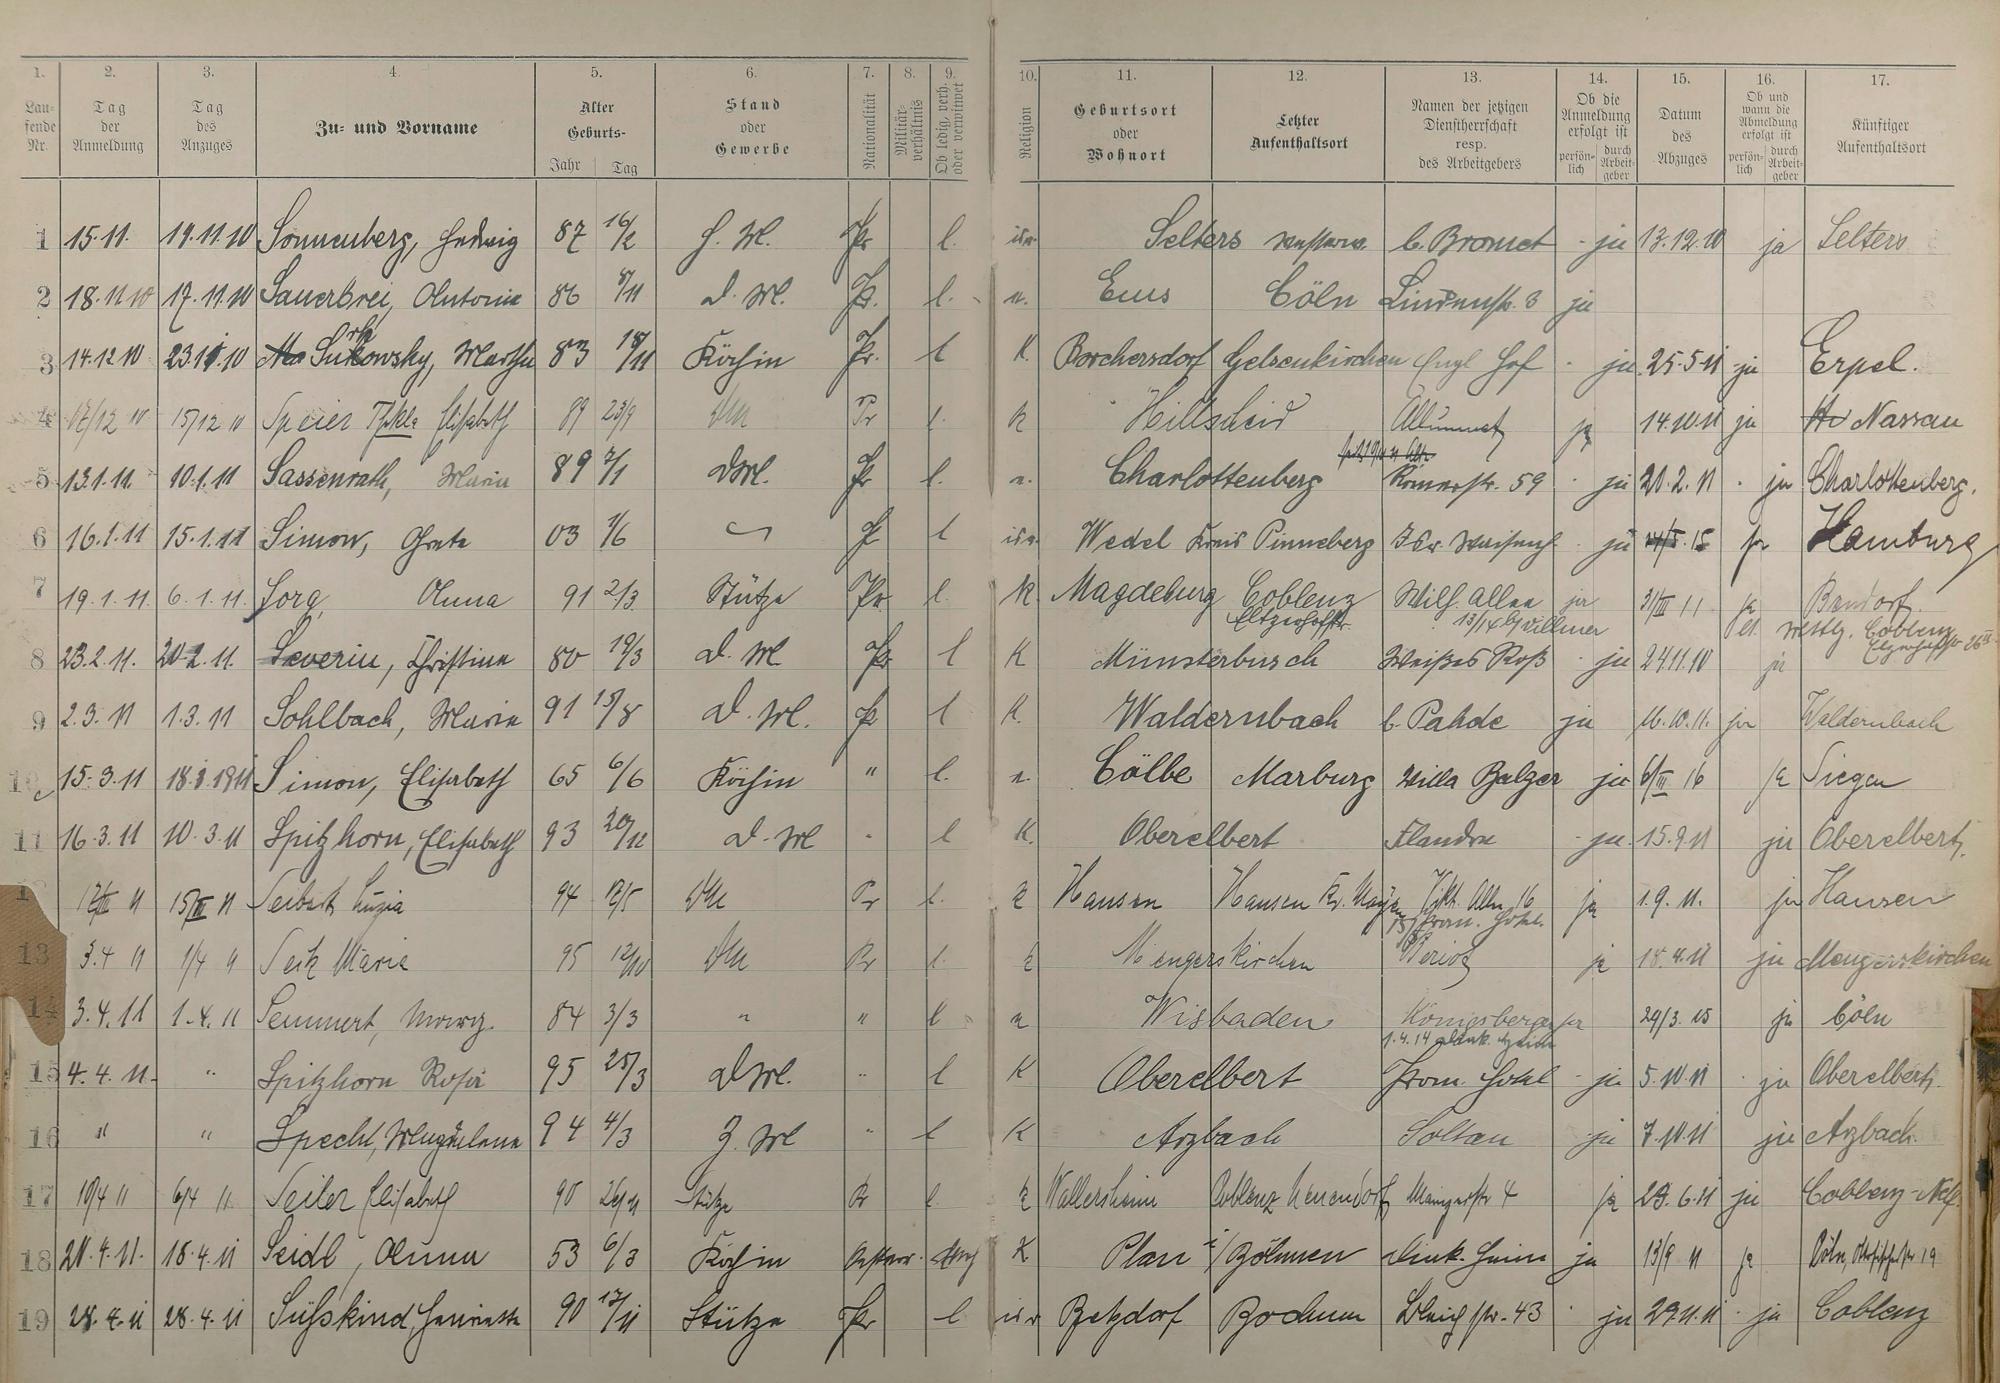 1. 2. 3. 4. 5. 6. 7. 8. 9. 10. 11. 12. 13. 14. 15. 16. 17.
Laufende Nr. Tag der Anmeldung Tag des Anzuges Zu- und Vorname Alter Geburts- Jahr Tag Stand oder Gewerbe Nationalität Militärverhältnis Ob ledig, verh. oder verwitwet Religion Geburtsort oder Wohnort Letzter Aufenthaltsort Namen der jetzigen Dienstherrschaft resp. des Arbeitgebers Ob die Anmeldung erfolgt ist persönlich durch Arbeitgeber Datum des Abzuges Ob und wann die Abmeldung erfolgt ist persönlich durch Arbeitgeber Künftiger Aufenthaltsort
1 15.11. 14.11.10 Sonnenberg, Hedwig 87 16/2 Pr l. isr. Selters b. Bromet - ja 13.12.10 ja Selters
2 18.11.10 17.11.10 Sauerbrei, Antonie 86 8/11 D. M. Pr. l. e. Ems Cöln Lindenstr. 3 ja
3 14.12.10 23.11.10 Surkowsky, Martha 83 18/11 Köchin Pr. l K. Borchersdorf Gelsenkirchen Engl Hof - ja 25.5.11 ja Erpel.
4 17/12 10 15/12 10 Speier Thekla Elisabeth 89 23/9 DM Pr l. k Hillscheid ja 14.10.11 ja Nassau
5 13.1.11. 10.1.11 Sassenrath, Maria 89 2/1 DM. Pr l. e. Charlottenberg Römerstr. 59 - ja 20.2.11 - ja Charlottenberg.
6 16.1.11 15.1.11 Simon, Greta 03 1/6 Pr l isr. Wedel Kreis Pinneberg Isr. Waisenh. - ja 15 ja Hamburg
7 19.1.11. 6.1.11. Sorg, Anna 91 2/3 Stütze Pr. l. K. Magdeburg Coblenz Wilh. Allee ja 31/III 11 ja Bendorf.
13/14 b/ Villmer Coblenz
8 23.2.11. 20.2.11. Severin, Christina 80 19/3 D. M Pr l K Münsterbusch Weißes Roß - ja 24.11.10 ja
9 2.3.11 1.3.11 Sohlbach, Maria 91 15/8 D. M. Pr l K. Waldernbach b. Pahde ja 16.10.11. ja Waldernbach
10 15.3.11 18.3.1911 Simon, Elisabeth 65 6/6 Köchin " l. e. Cölbe Marburg Villa Balzer ja 6/III 16 ja Siegen
11 16.3.11 10.3.11 Spitzhorn, Elisabeth 93 20/12 D. M " l K. Oberelbert Flandre - ja. 15.9.11 ja Oberelbert.
12 17/III 11 15/III 11 Seibert Luzia 94 12/5 DM Pr l. k Hausen Hausen Kr. Mayen Vikt. Allee 16 ja 1.9.11. ja Hausen
Prom. Hotel.
13 3.4 11 1/4 11 Seck Maria 95 12/10 DM Pr l. k Mengerskirchen ja 18.4.11 ja Mengerskirchen
14 3.4.11 1.4.11 Semmert, 84 3/3 " " l. e Wisbaden Königsberger ja 29/3.15 ja Cöln
15 4.4.11. " Spitzhorn Rosa 95 25/3 DM. " l K Oberelbert Prom. Hotel - ja 5.10.11 - ja Oberelbert.
16 " " Specht, Magdalena 94 4/3 Z. M " l K Arzbach Soltau - ja 7.10.11 ja Arzbach.
17 10/4 11 6/4 11 Seiler Elisabeth 90 26/11 Stütze Pr l. k Wallersheim Coblenz Neuendorf Mainzerstr 4 ja 29.6.11 ja Coblenz-Nef.
18 20.4.11. 18.4.11 Seidl, Anna 53 6/3 Köchin K Plan i/Böhmen ja 13/9 11 ja Cöln, 19
19 28.4.11 28.4.11 Süßkind, Henriette 90 17/11 Stütze Pr l isr Betzdorf Bochum Bleichstr. 43 - ja 29.11.11 - ja Coblenz